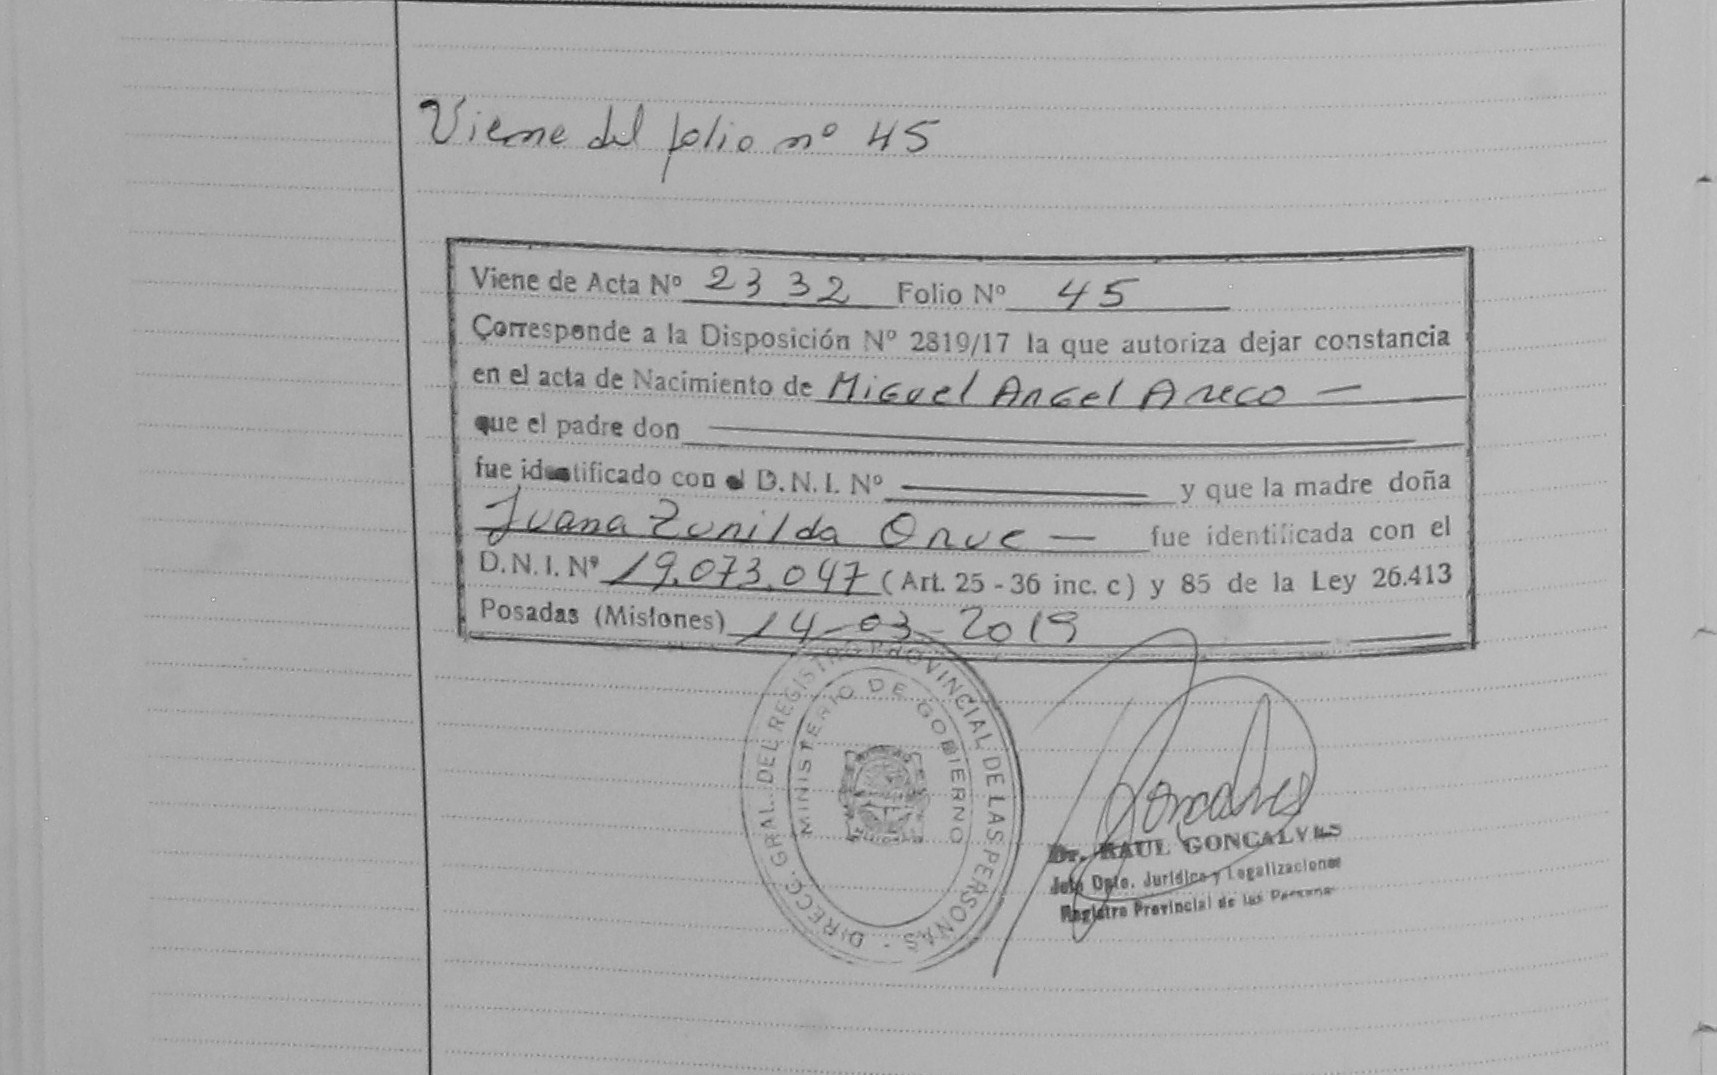 Viene del folio nº 45
Viene de Acta Nº 2332 Folio Nº 45
Corresponde a la Disposición Nº 2819/17 la que autoriza dejar constancia
en el acta de Nacimiento de Miguel Angel Areco —
que el padre don
fue identificado con el D.N.I. Nº y que la madre doña
Juana Zunilda Orue — fue identificada con el
D.N.I. Nº 19.073.047 (Art. 25 - 36 inc. c) y 85 de la Ley 26.413
Posadas (Misiones) 14-03-2019
DIRECC. GRAL. DEL REGISTRO PROVINCIAL DE LAS PERSONAS -
MINISTERIO DE GOBIERNO
Dr. RAUL GONCALVES
Jefe Dpto. Jurídico y Legalizaciones
Registro Provincial de las Personas